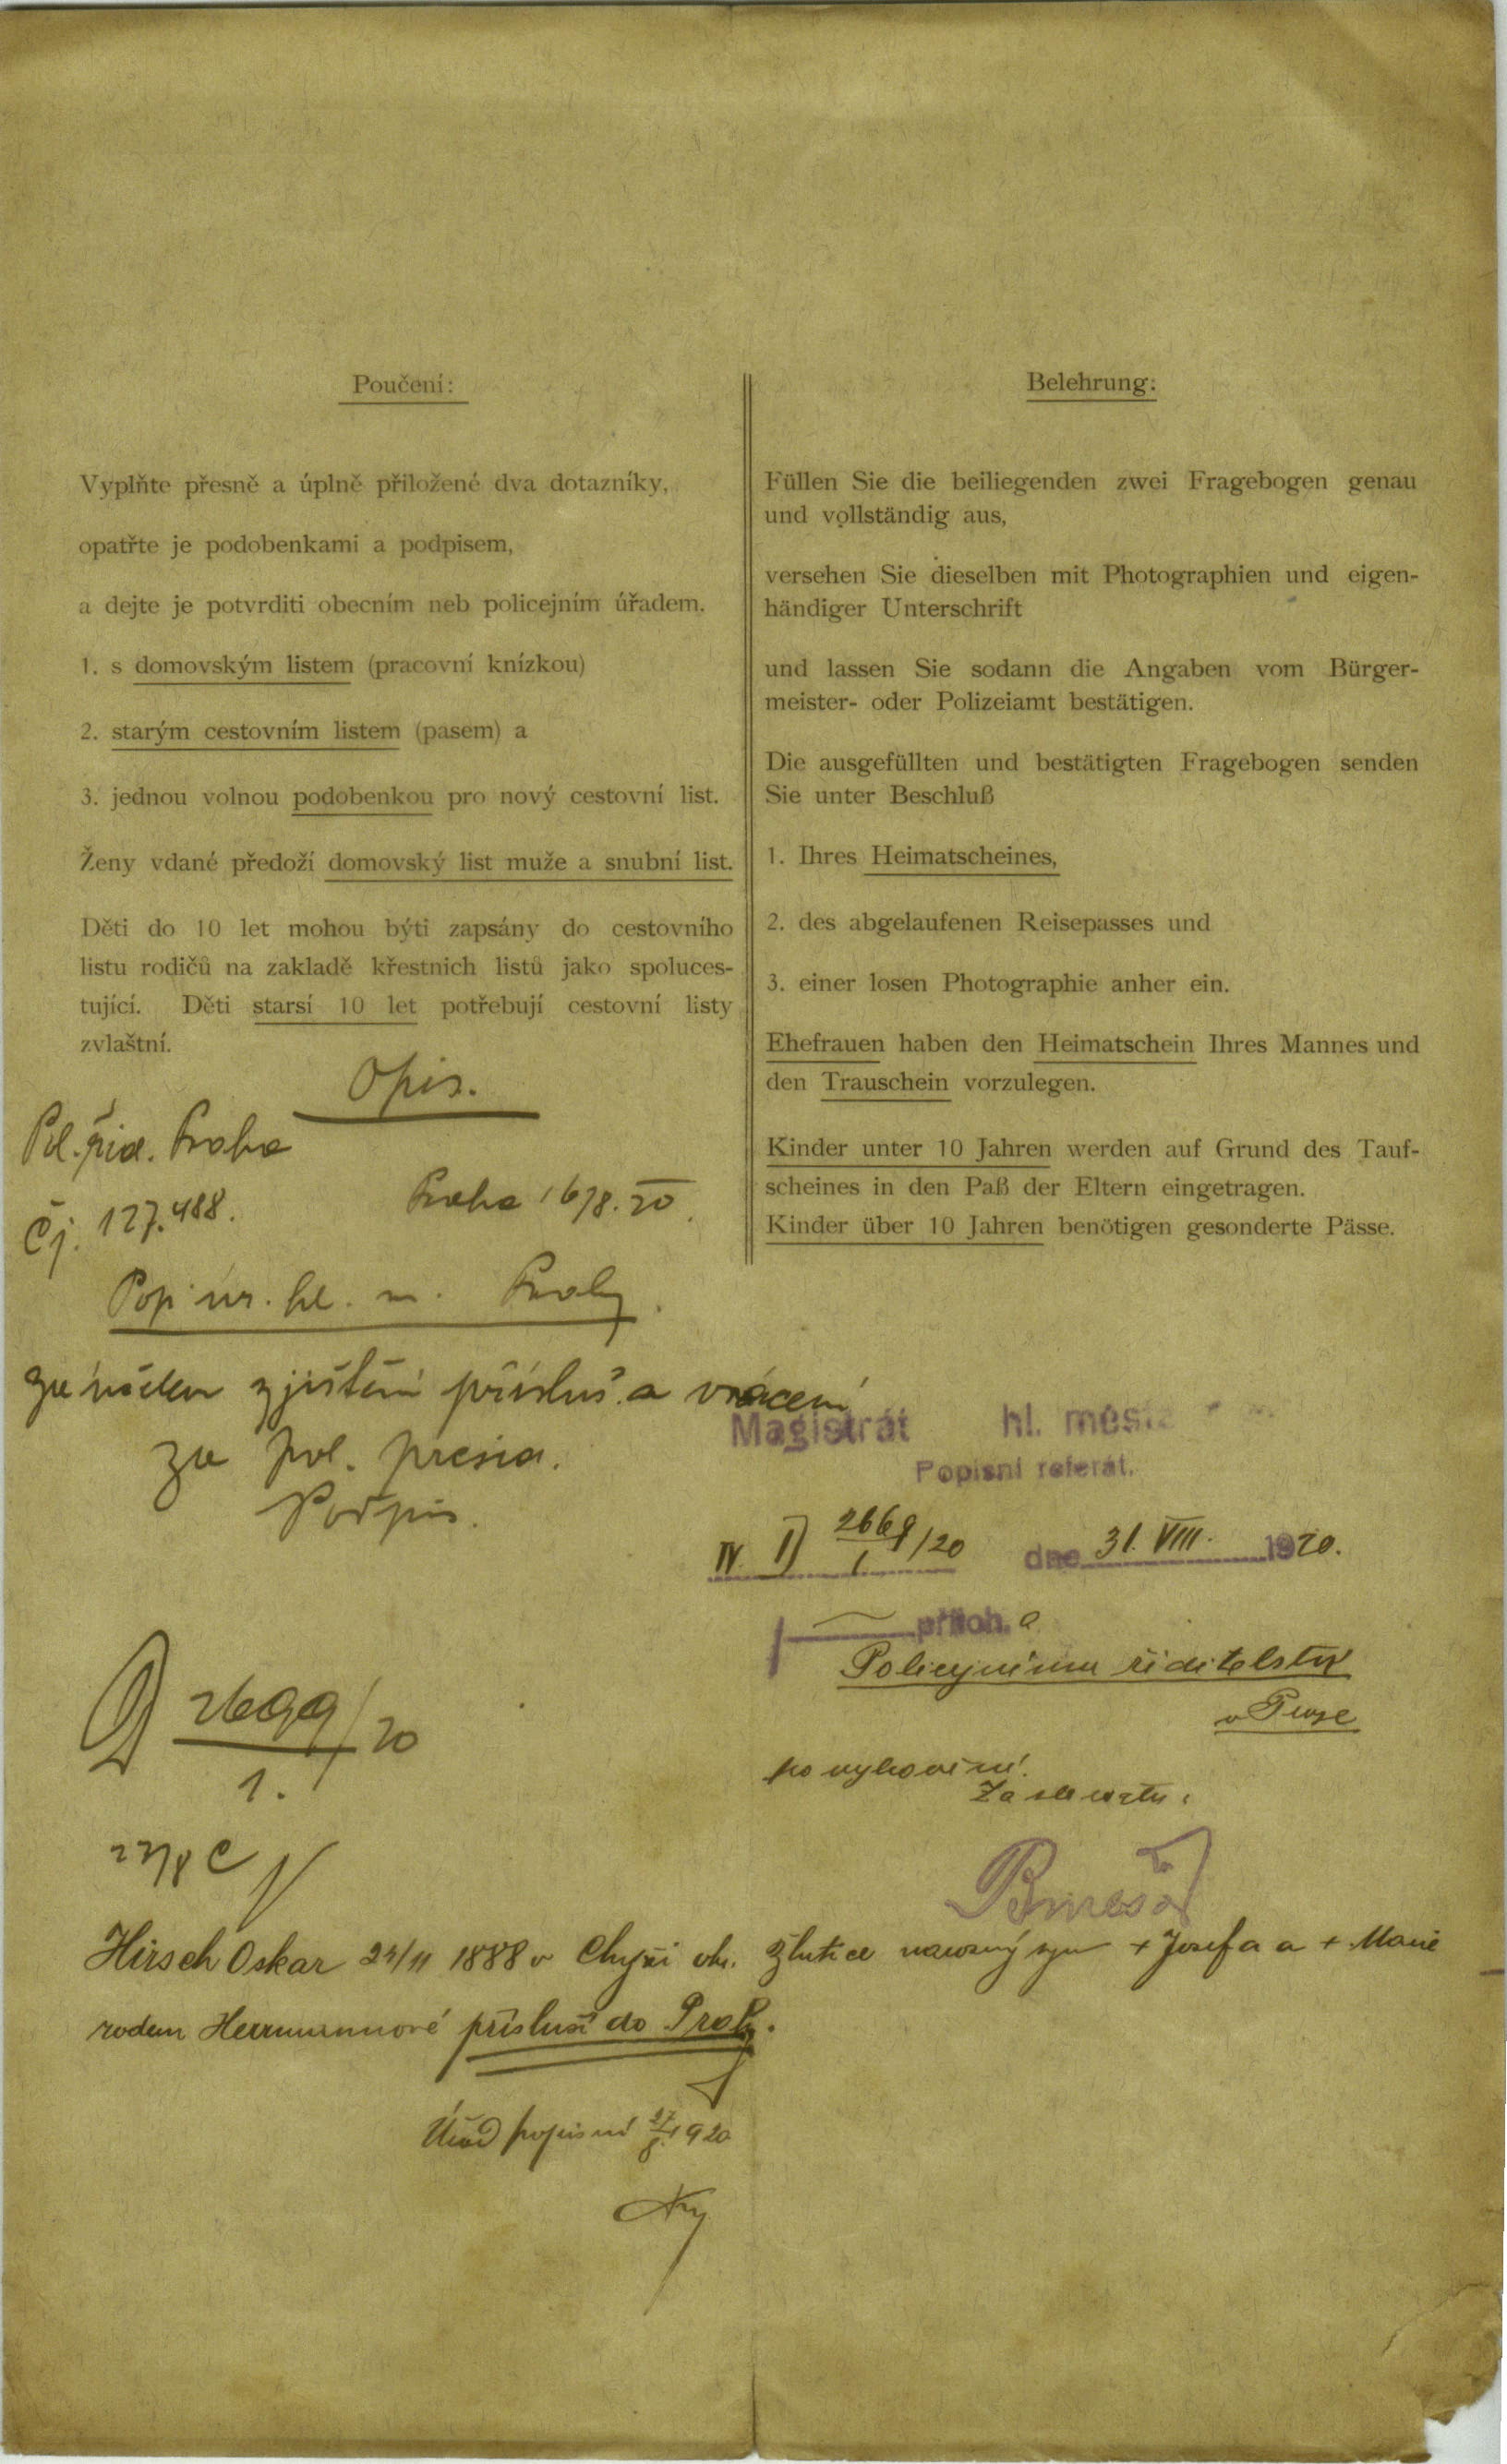 Poučení:
Vyplňte přesně a úplně přiložené dva dotazníky,
opatřte je podobenkami a podpisem,
a dejte je potvrditi obecním neb policejním úřadem.
1. s domovským listem (pracovní knízkou)
2. starým cestovním listem (pasem) a
3. jednou volnou podobenkou pro nový cestovní list.
Ženy vdané předoží domovský list muže a snubní list.
Děti do 10 let mohou býti zapsány do cestovního
listu rodičů na zakladě křestnich listů jako spoluces-
tující. Děti starsí 10 let potřebují cestovní listy
zvlaštní.
Belehrung:
Füllen Sie die beiliegenden zwei Fragebogen genau
und vollständig aus,
versehen Sie dieselben mit Photographien und eigen-
händiger Unterschrift
und lassen Sie sodann die Angaben vom Bürger-
meister- oder Polizeiamt bestätigen.
Die ausgefüllten und bestätigten Fragebogen senden
Sie unter Beschluß
1. Ihres Heimatscheines,
2. des abgelaufenen Reisepasses und
3. einer losen Photographie anher ein.
Ehefrauen haben den Heimatschein Ihres Mannes und
den Trauschein vorzulegen.
Kinder unter 10 Jahren werden auf Grund des Tauf-
scheines in den Paß der Eltern eingetragen.
Kinder über 10 Jahren benötigen gesonderte Pässe.
Opis.
Pol. řid. Praha
Čj. 127.488.
Praha 16/8. 20.
Pop. úř. hl. m. Prahy.
za účelem zjištění přísluš. a vrácení
za pol. presid.
Podpis.
Magistrát hl. města
Popisní referát.
IV. D 2669/1 /20 dne 31. VIII. 1920.
příloh. a
Policejnímu ředitelství
v Praze
po vyhovění.
Za starostu:
D 2699/1. /20
Hirsch Oskar 24/11 1888 v Chyši okr. Žlutice narozený syn + Josefa a + Marie
rodem Herrmannové přísluší do Prahy.
Úřad popisní 27/8 1920